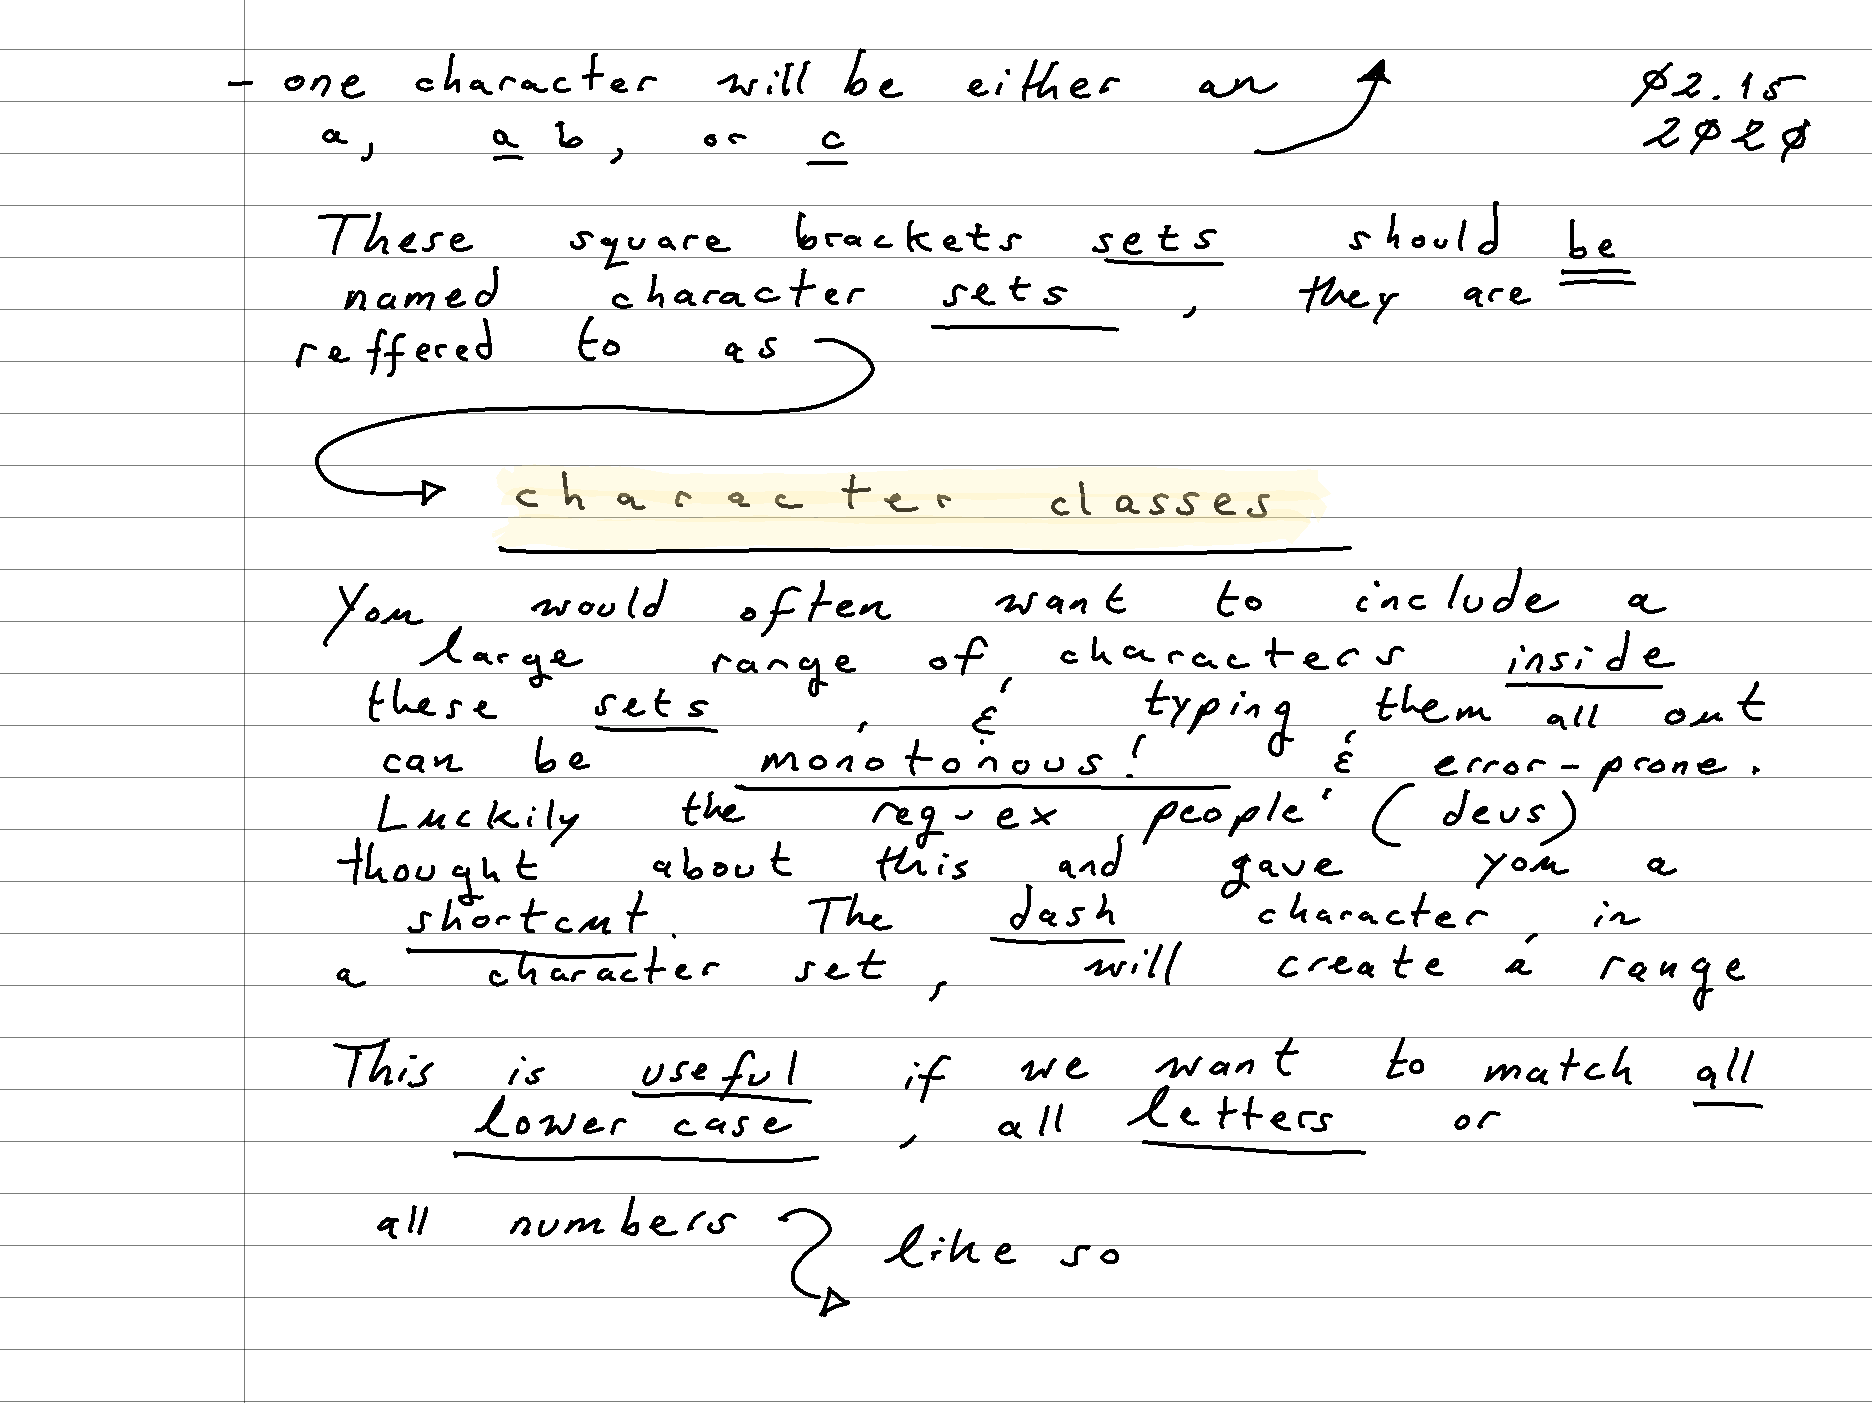 - one character will be either an
02.15
a, a b, or c
2020
These square brackets sets should be
named character sets, they are
reffered to as
character classes
You would often want to include a
large range of characters inside
these sets, & typing them all out
can be monotonous! & error-prone.
Luckily the reg-ex people (devs)
thought about this and gave you a
shortcut. The dash character, in
a character set, will create a range
This is useful if we want to match all
lower case, all letters or
all numbers
like so